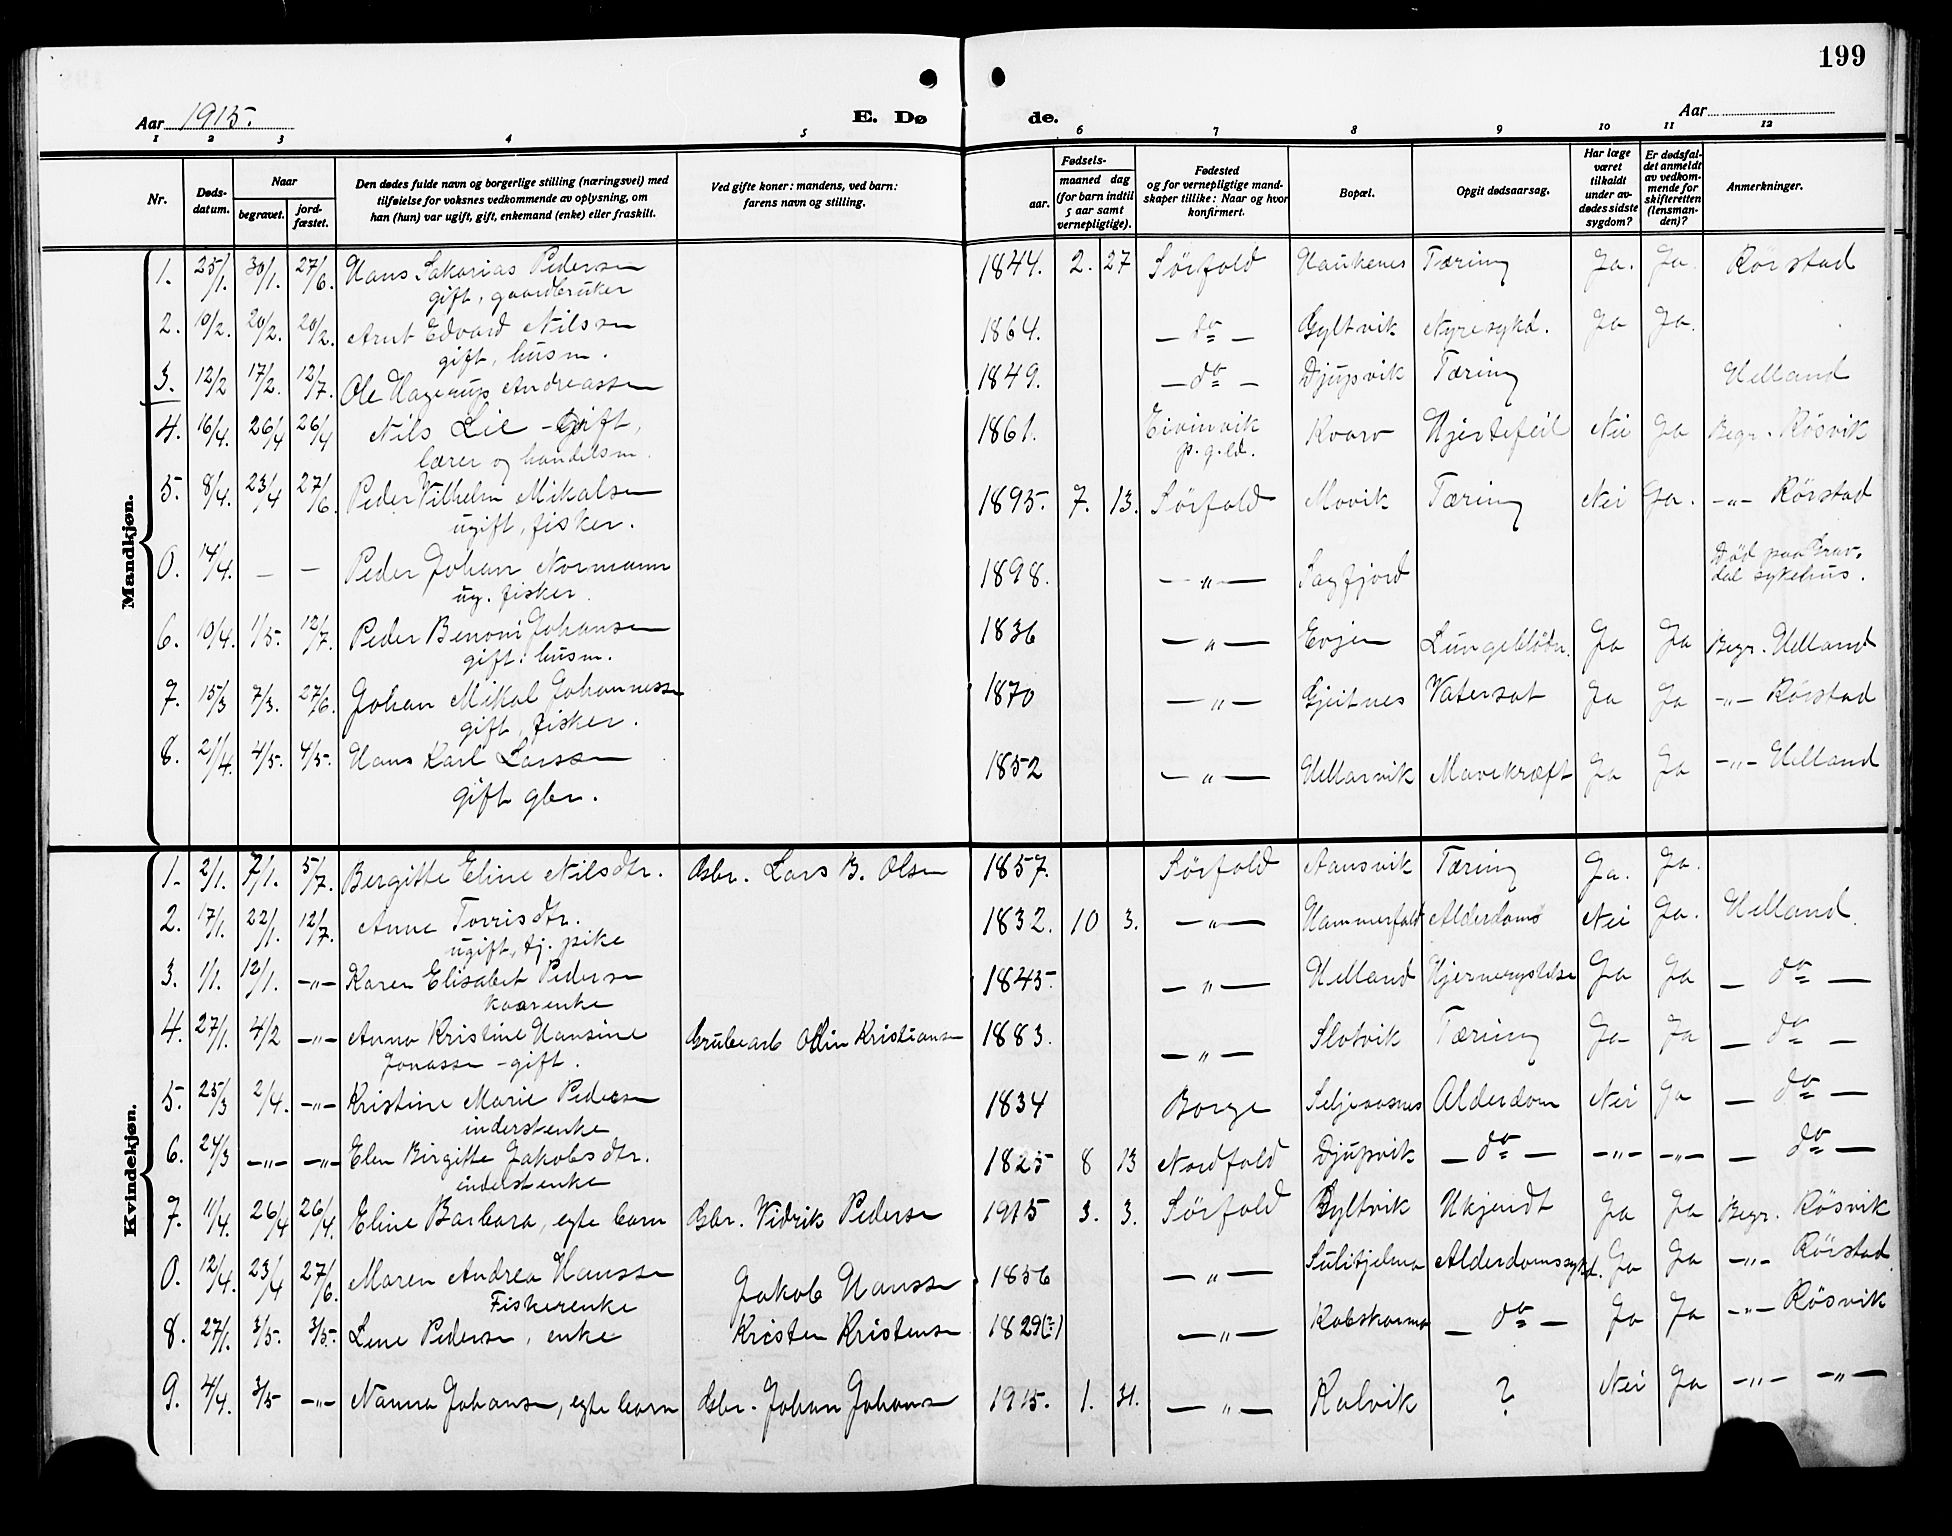 199
Aar 1915.
E. Dø de.
Aar
1 2 3 4 5 6 7 8 9 10 11 12
Nr.
Døds-
datum.
Naar
begravet.
jord-
fæstet.
Den dødes fulde navn og borgerlige stilling (næringsvei) med
tilføielse for voksnes vedkommende av oplysning, om
han (hun) var ugift, gift, enkemand (enke) eller fraskilt.
Ved gifte koner: mandens, ved barn:
farens navn og stilling.
Fødsels-
aar.
maaned dag
(for barn indtil
5 aar samt
vernepligtige).
Fødested
og for vernepligtige mand-
skaper tillike: Naar og hvor
konfirmert.
Bopæl.
Opgit dødsaarsag.
Har læge
været
tilkaldt
under av-
dødes sidste
sygdom?
Er dødsfal-
det anmeldt
av vedkom-
mende for
skifteretten
(lensman-
den)?
Anmerkninger.
Mandkjøn.
1. 25/1. 30/1. 27/6. Hans Sakarias Pedersen 1844. 2. 27 Sörfold Haukenes Tæring Ja. Ja Rörstad
gift, gaardbruker
2. 10/2. 20/2. 20/2. Arnt Edvard Nilssen 1864. — do — Gyltvik Nyresykd. Ja Ja.
gift, husm.
3. 12/2 17/2. 12/7. Ole Hagerup Andreassen 1849. — do — Djupvik Tæring Helland
4. 16/4. 26/4 26/4 Nils Lie - Gift, 1861. Eivinvik Kvarv Hjertefeil Nei Ja Begr. Rösvik
lærer og handelsm. p.g.ld.
5. 8/4. 23/4 27/6. Peder Vilhelm Mikalsen 1895. 7. 13. Sörfold Movik Tæring Nei Ja. -"- Rörstad
ugift, fisker.
0. 14/4. — — Peder Johan Normann 1898. — " — Sagfjord Död paa Grav-
ug. fisker. dal sykehus.
6. 19/4. 1/5. 12/7. Peder Benoni Johansen 1836 — " — Evjen Lungeblödn. Ja Ja Begr. Helland
gift. husm.
7. 15/3 7/3. 27/6. Johan Mikal Johannessen 1870 — " — Gjeitnes Vatersot Ja Ja -"- Rörstad
gift, fisker.
8. 21/4. 4/5. 4/5. Hans Karl Larssen 1852 — " — Hellarvik Mavekræft Ja Ja -"- Helland
gift gbr.
Kvindekjøn.
1. 2/1. 7/1. 5/7. Bergitte Eline Nilsdtr. Gbr. Lars B. Olsen 1857. Sörfold Aansvik Tæring Ja. Ja.
2. 17/1. 22/1. 12/7. Anne Torrisdtr. 1832. 10 3. — " — Hammerfald Alderdoms Nei Ja. Helland.
ugift, tj. pike
3. 1/1. 12/1. -"- Karen Elisabet Pedersen 1845. — " — Helland Hjernerystelse Ja Ja — do —
kaarenke
4. 27/1. 4/2 -"- Anna Kristine Hansine Grubearb Odin Kristiansen 1883. — " — Slotvik Tæring Ja Ja — do —
Jonassen - gift.
5. 25/3 2/4. -"- Kristine Marie Pedersen 1834 Borge Seljeaasnes Alderdom Nei Ja — do —
inderstenke
6. 24/3 -"- -"- Elen Birgitte Jakobsdtr. 1825 8 13 Nordfold Djupvik — do — -"- -"- — do —
inderstenke
7. 11/4. 26/4 26/4. Eline Barbara, egte barn Gbr. Vidrik Pedersen 1915 3. 3. Sörfold Gyltvik Ukjendt Ja Ja Begr. Rösvik
0. 12/4. 23/4 27/6. Maren Andrea Hanssen Jakob Hanssen 1856 — " — Sulitjelma Alderdomssykd. Ja Ja -"- Rörstad
Fiskerenke
8. 27/1. 3/5. 3/5. Lene Pedersen, enke Kristen Kristensen 1829(?) — " — Kobskarmo — do — Ja Ja -"- Rösvik
9. 4/4. 3/5 -"- Nanna Johansen, egte barn Gbr. Johan Johansen 1915. 1. 31. — " — Kalvik ? Nei Ja -"- -"-